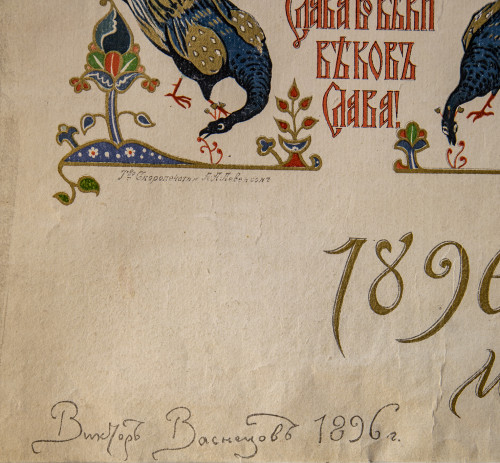 Слава во вѣки
вѣковъ
Слава!
Т-во Скоропечатни А.А.Левенсонъ
1896
Викторъ Васнецовъ 1896 г.